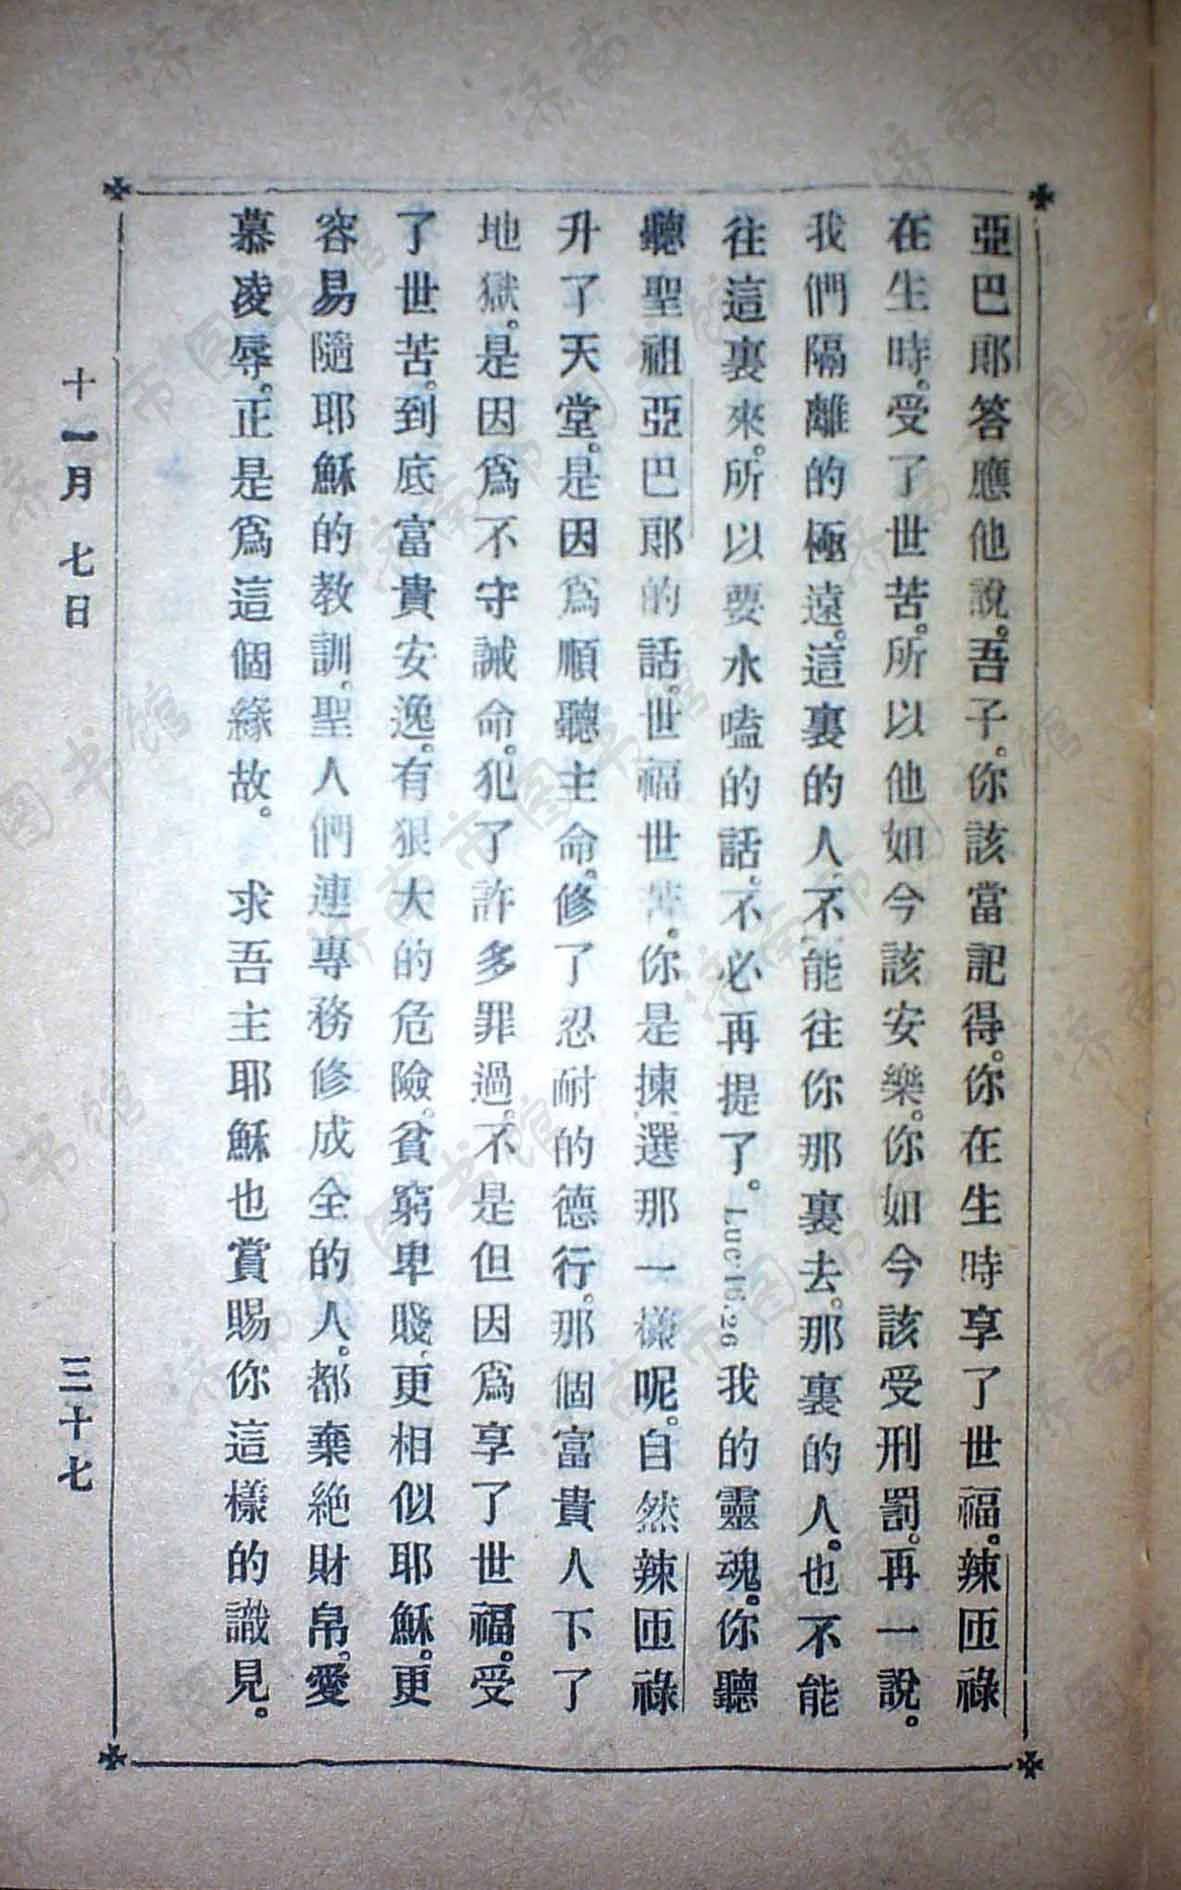 亞巴郎答應他說。吾子。你該當記得。你在生時享了世福。辣匝祿
在生時。受了世苦。所以他如今該安樂。你如今該受刑罰。再一說。
我們隔離的極遠。這裏的人、不能往你那裏去。那裏的人。也不能
往這裏來。所以要水嗑的話。不必再提了。Luc 16.26 我的靈魂。你聽
聽聖祖亞巴郎的話。世福世苦。你是揀選那一樣呢。自然辣匝祿
升了天堂。是因爲順聽主命。修了忍耐的德行。那個富貴人下了
地獄。是因爲不守誡命。犯了許多罪過。不是但因爲享了世福。受
了世苦。到底富貴安逸。有狠大的危險。貧窮卑賤、更相似耶穌。更
容易隨耶穌的教訓。聖人們連專務修成全的人。都棄絶財帛。愛
慕凌辱。正是爲這個緣故。 求吾主耶穌也賞賜你這樣的識見。
十一月 七日 三十七
济南市图书馆